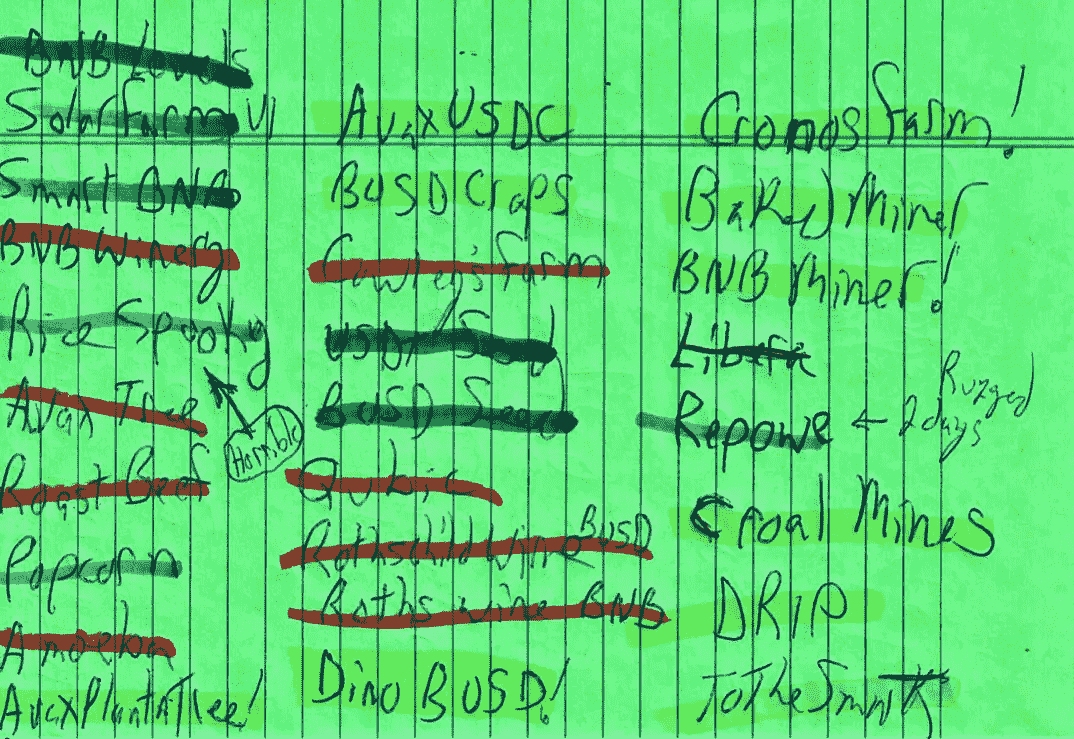 BNB Lovels
Solar Farm V1
Smart BNB
BNB Winery
Rice Spooky
Horrible
Avax Tree
Roast Beef
Popcorn
Amoeba
AvaxPlantnTree!
Avax USDC
BUSD Craps
Cawley's Farm
USDT Seed
BUSD Seed
Qubic
Rothschild Wine BUSD
Roths wine BNB
Dino BUSD!
Cronos Farm!
Baked Miner
BNB Miner!
Repowe ← 2 days
Rugged
Croal Mines
DRIP